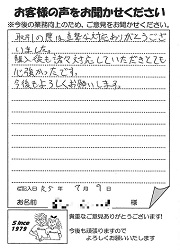 お客様の声をお聞かせください
※今後の業務向上のため、ご意見をお聞かせください。
取引の際は真摯な対応ありがとうござ
いました。
購入後も諸々対応していただきとても
心強かったです。
今後もよろしくお願いします。
ご記入日 R5年 7月 9日
お名前 様
貴重なご意見ありがとうございます!
今後も頑張りますので
よろしくお願いいたします
Since
1979